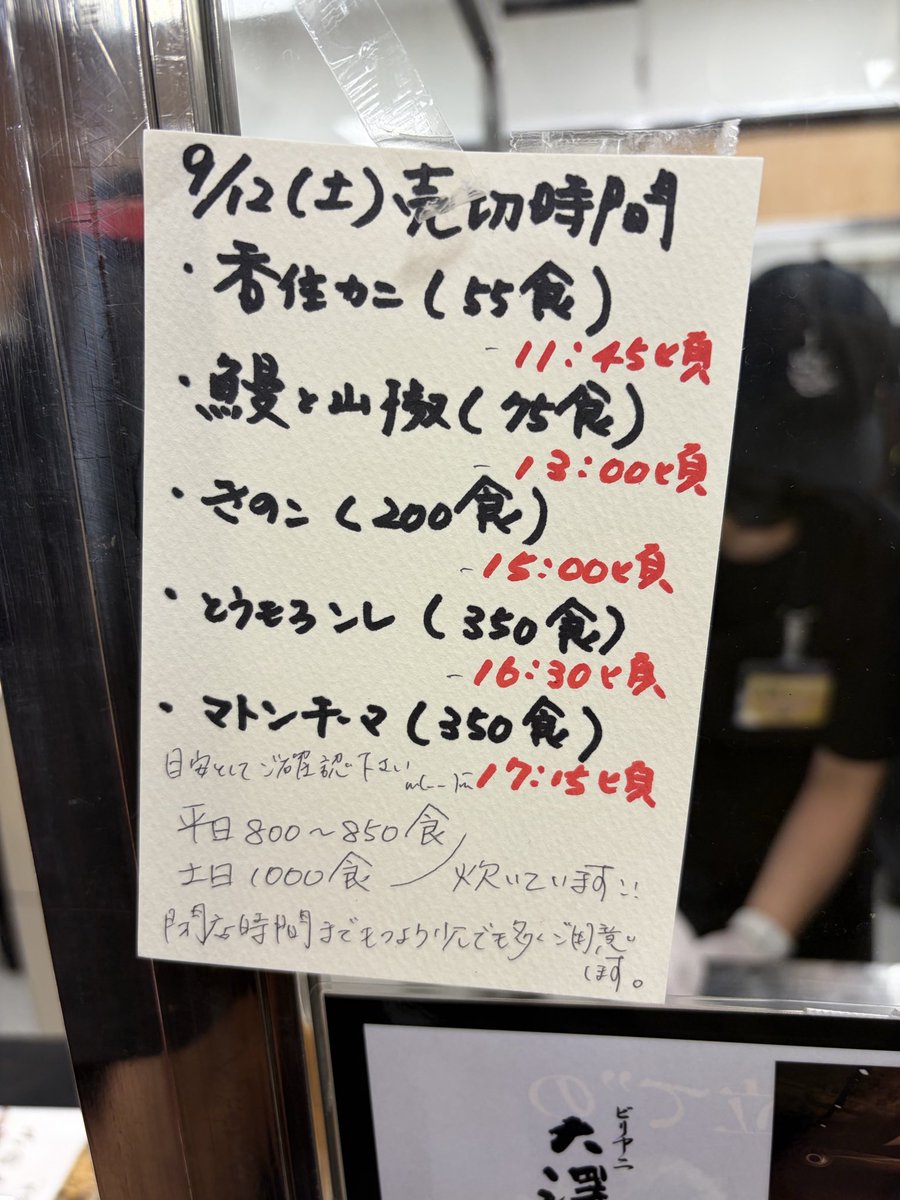 9/12(土)売切時間
・香住カニ(55食)
- 11:45ヒ頃
・鰻と山椒(75食)
- 13:00ヒ頃
・きのこ(200食)
- 15:00ヒ頃
・とうもろこし(350食)
- 16:30ヒ頃
・マトンキーマ(350食)
17:15ヒ頃
目安としてご確認下さい m(--)m
平日800〜850食
土日1000食
炊いています!!
閉店時間までもつよう少しでも多くご用意
します。
ビリヤニ
大澤